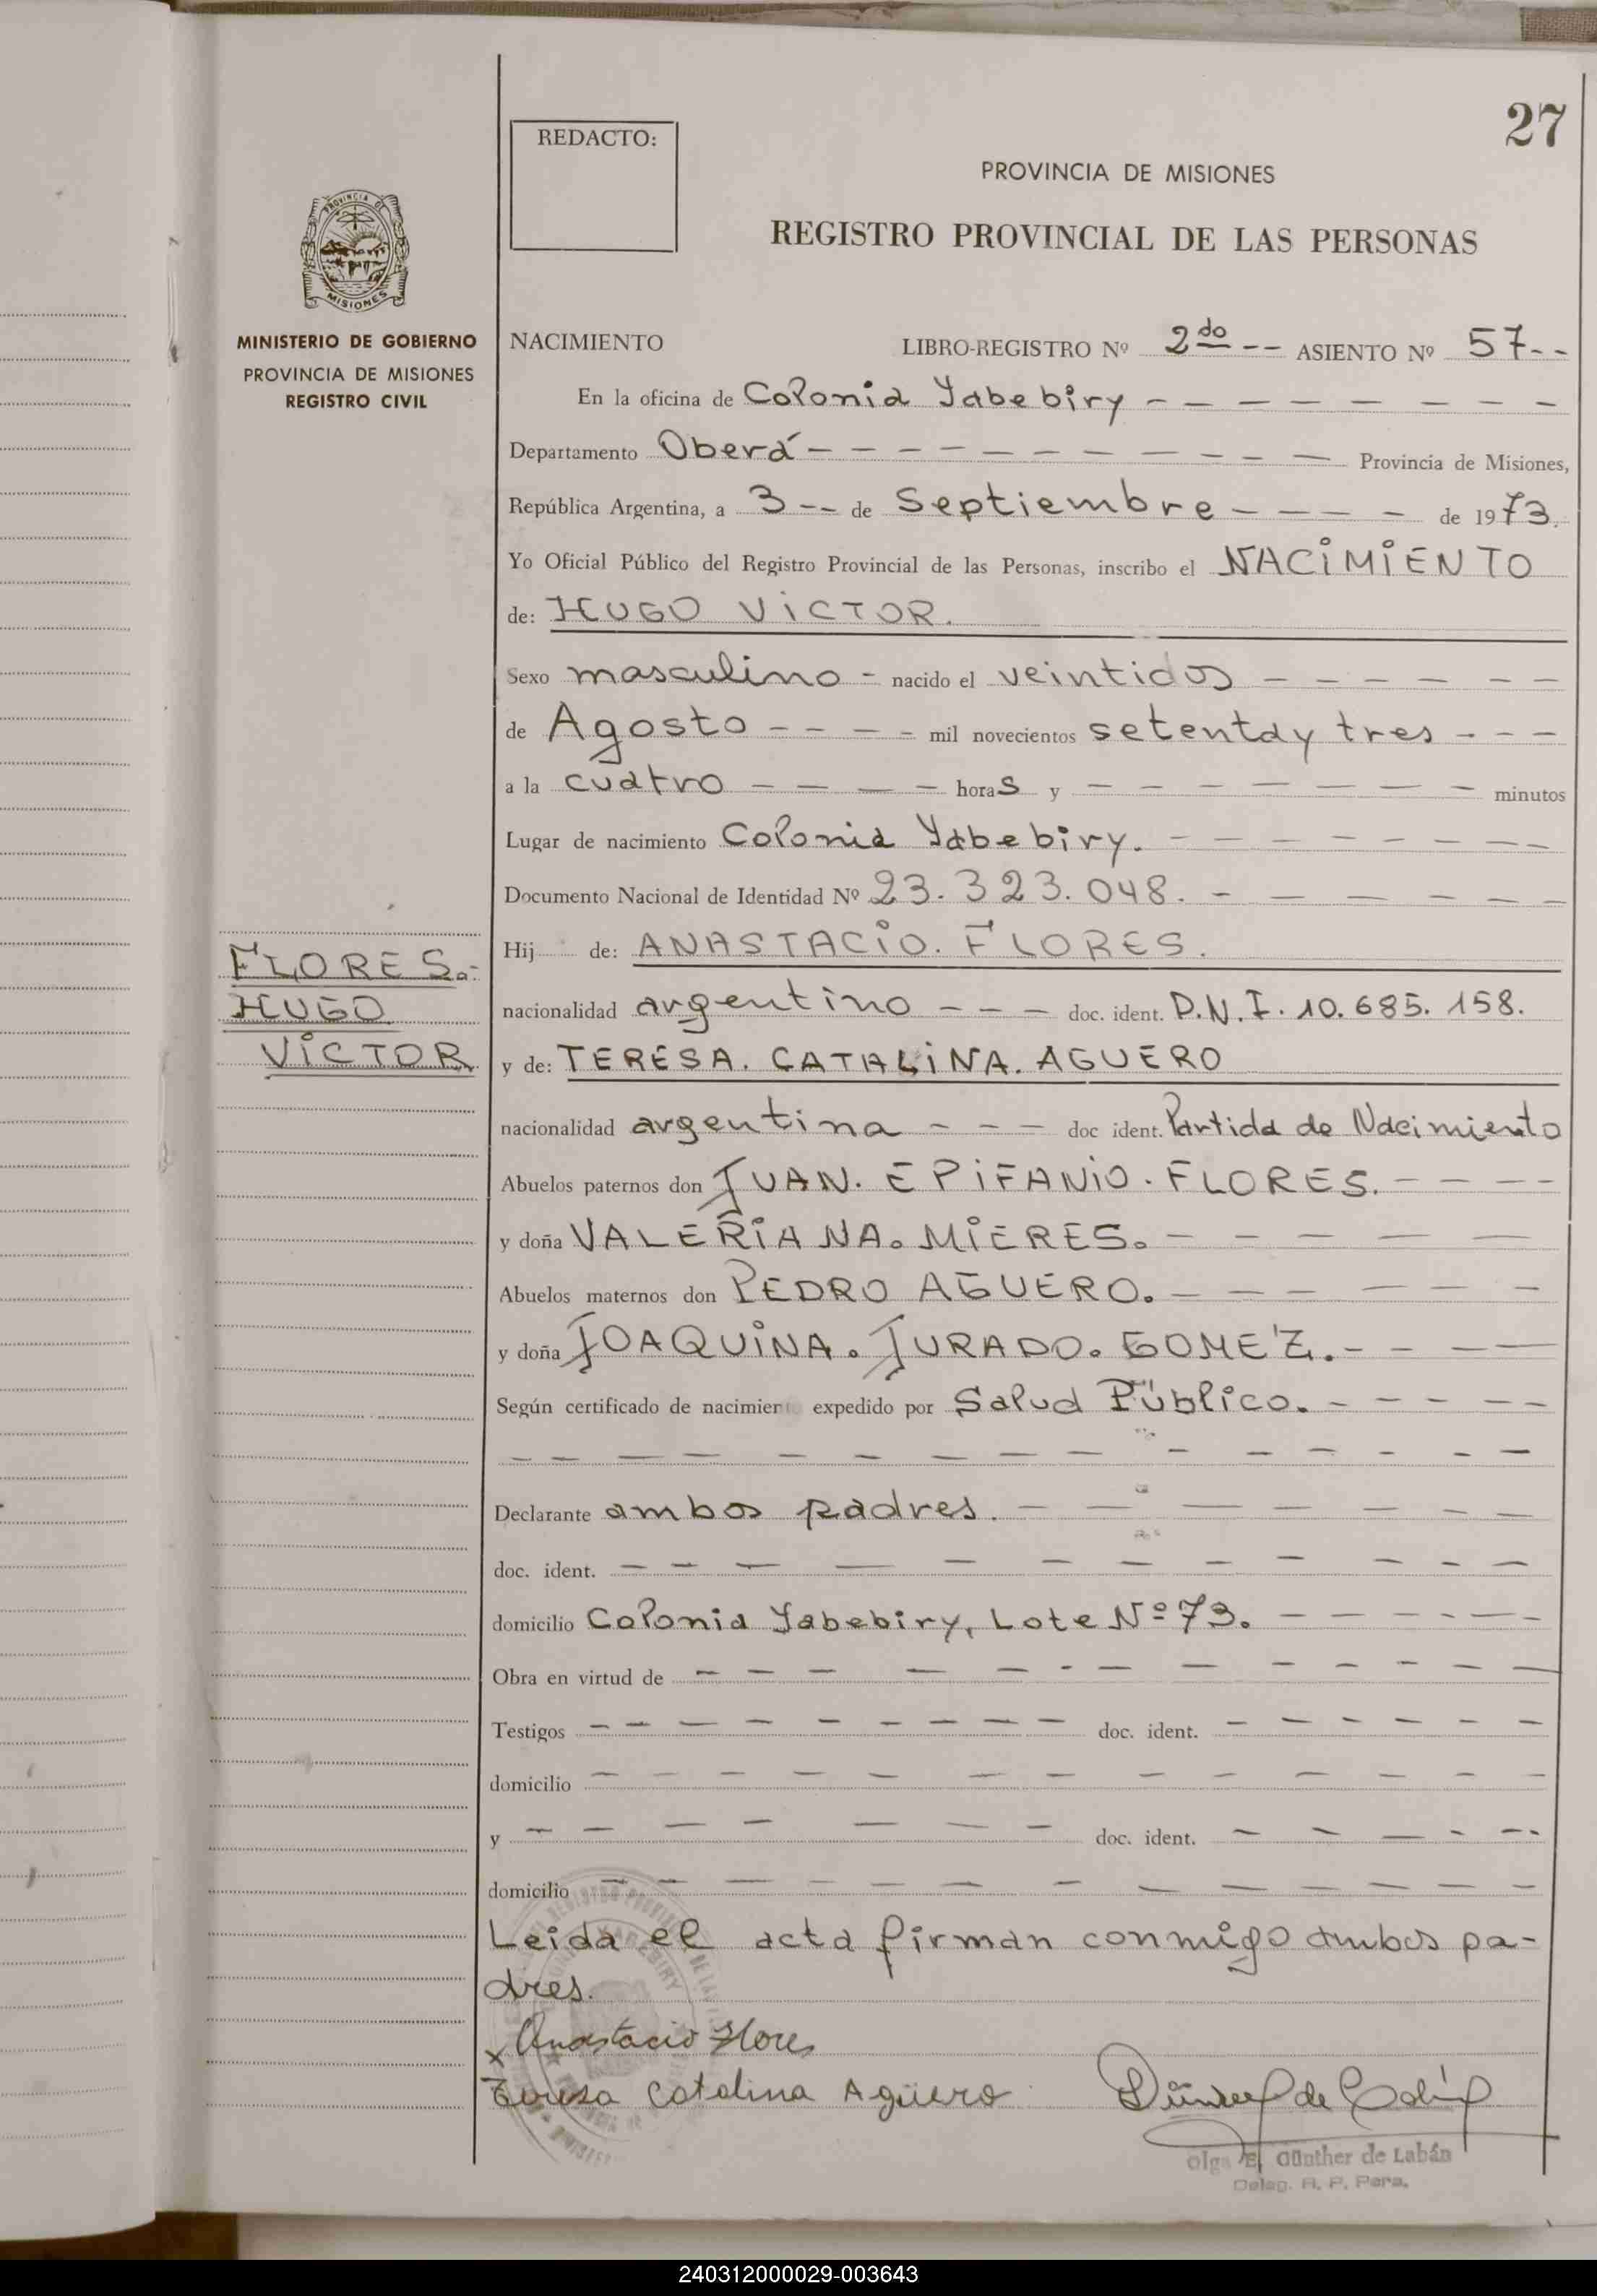 27
REDACTO:
PROVINCIA DE MISIONES
REGISTRO PROVINCIAL DE LAS PERSONAS
PROVINCIA DE
MISIONES
MINISTERIO DE GOBIERNO
PROVINCIA DE MISIONES
REGISTRO CIVIL
NACIMIENTO LIBRO-REGISTRO Nº 2do -- ASIENTO Nº 57--
En la oficina de Colonia Yabebiry - - - - - - - -
Departamento Oberá - - - - - - - - - - - Provincia de Misiones,
República Argentina, a 3 -- de Septiembre - - - - de 1973.
Yo Oficial Público del Registro Provincial de las Personas, inscribo el NACIMIENTO
de: HUGO VICTOR.
Sexo masculino - nacido el veintidos - - - - - -
de Agosto - - - - mil novecientos setentay tres - - -
a la cuatro - - - - horas y - - - - - - - - minutos
Lugar de nacimiento Colonia Yabebiry. - - - - - - - -
Documento Nacional de Identidad Nº 23.323.048. - - - - - -
Hij de: ANASTACIO. FLORES.
FLORES.-
HUGO
VICTOR
nacionalidad argentino - - - doc. ident. D.N.I. 10.685.158.
y de: TERESA. CATALINA. AGUERO
nacionalidad argentina - - - doc ident. Partida de Nacimiento
Abuelos paternos don JUAN. EPIFANIO. FLORES. - - - -
y doña VALERIANA. MIERES. - - - - - -
Abuelos maternos don PEDRO AGUERO. - - - - - -
y doña JOAQUINA. JURADO. GOMEZ. - - - -
Según certificado de nacimien expedido por Salud Público. - - - - -
- - - - - - - - - - - - - - -
Declarante ambos padres. - - - - - - -
doc. ident. - - - - - - - - - - - -
domicilio Colonia Yabebiry, Lote Nº 73. - - - - - -
Obra en virtud de - - - - - - - - - - - - -
Testigos - - - - - - - - - doc. ident. - - - - - -
domicilio - - - - - - - - - - - - -
y - - - - - - - doc. ident. - - - - -
domicilio - - - - - - - - - - - - -
Leida el acta firman conmigo ambos pa-
dres.
x Anastacio Flores
Teresa Catalina Agüero
Olga E. Günther de Labán
Deleg. R. P. Pers.
240312000029-003643